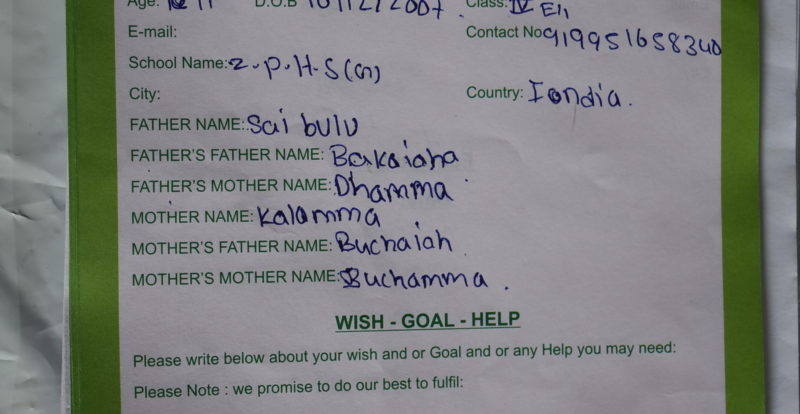 Age: 11 D.O.B 10/12/2007. Class: IV Eh
E-mail: Contact No 919951658340
School Name: Z.P.H.S (G)
City: Country: Iondia.
FATHER NAME: Sai bulu
FATHER'S FATHER NAME: Bakaiaha
FATHER'S MOTHER NAME: Dhamma
MOTHER NAME: Kalamma
MOTHER'S FATHER NAME: Buchaiah
MOTHER'S MOTHER NAME: Buchamma.
WISH - GOAL - HELP
Please write below about your wish and or Goal and or any Help you may need:
Please Note : we promise to do our best to fulfil: